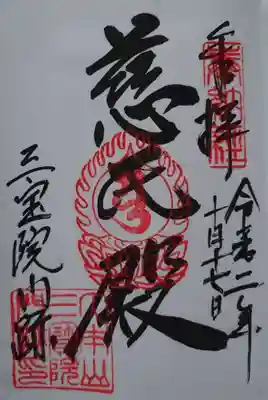 奉拝
令和二年
十月十七日
慈氏殿
三宝院門跡
三寳院